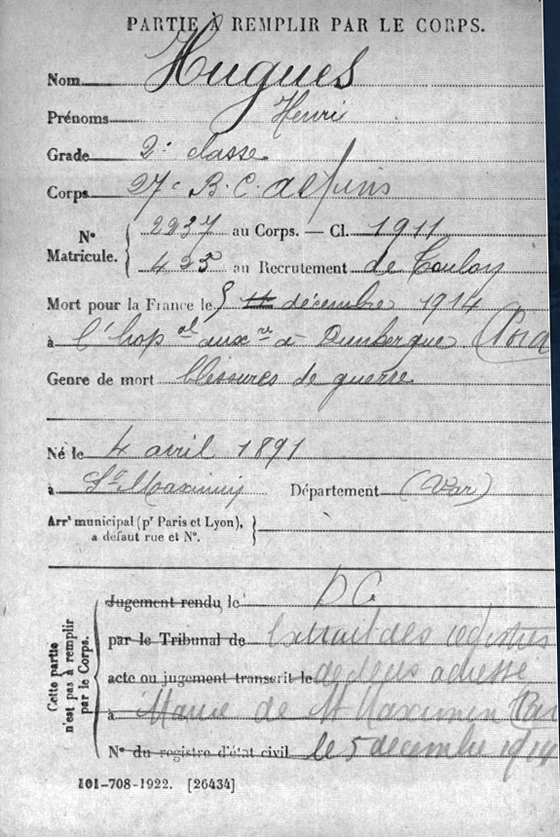 PARTIE À REMPLIR PAR LE CORPS.
Nom Hugues
Prénoms Henri
Grade 2e classe
Corps 27e B. C. alpins
N° Matricule. 2237 au Corps. — Cl. 1911
423 au Recrutement de Toulon
Mort pour la France le 5 décembre 1914
à l'hop al auxre à Dunkerque (Nord
Genre de mort blessures de guerre
Né le 4 avril 1891
à St Maximin Département (Var)
Arrt municipal (pr Paris et Lyon), à défaut rue et N°.
Cette partie n'est pas à remplir par le Corps.
Jugement rendu, le D C
par le Tribunal de Extrait des registres
acte ou jugement transcrit le de décès adressé
à Mairie de St Maximin (Var
N° du registre d'état civil le 5 décembre
101-708-1922. [26434]